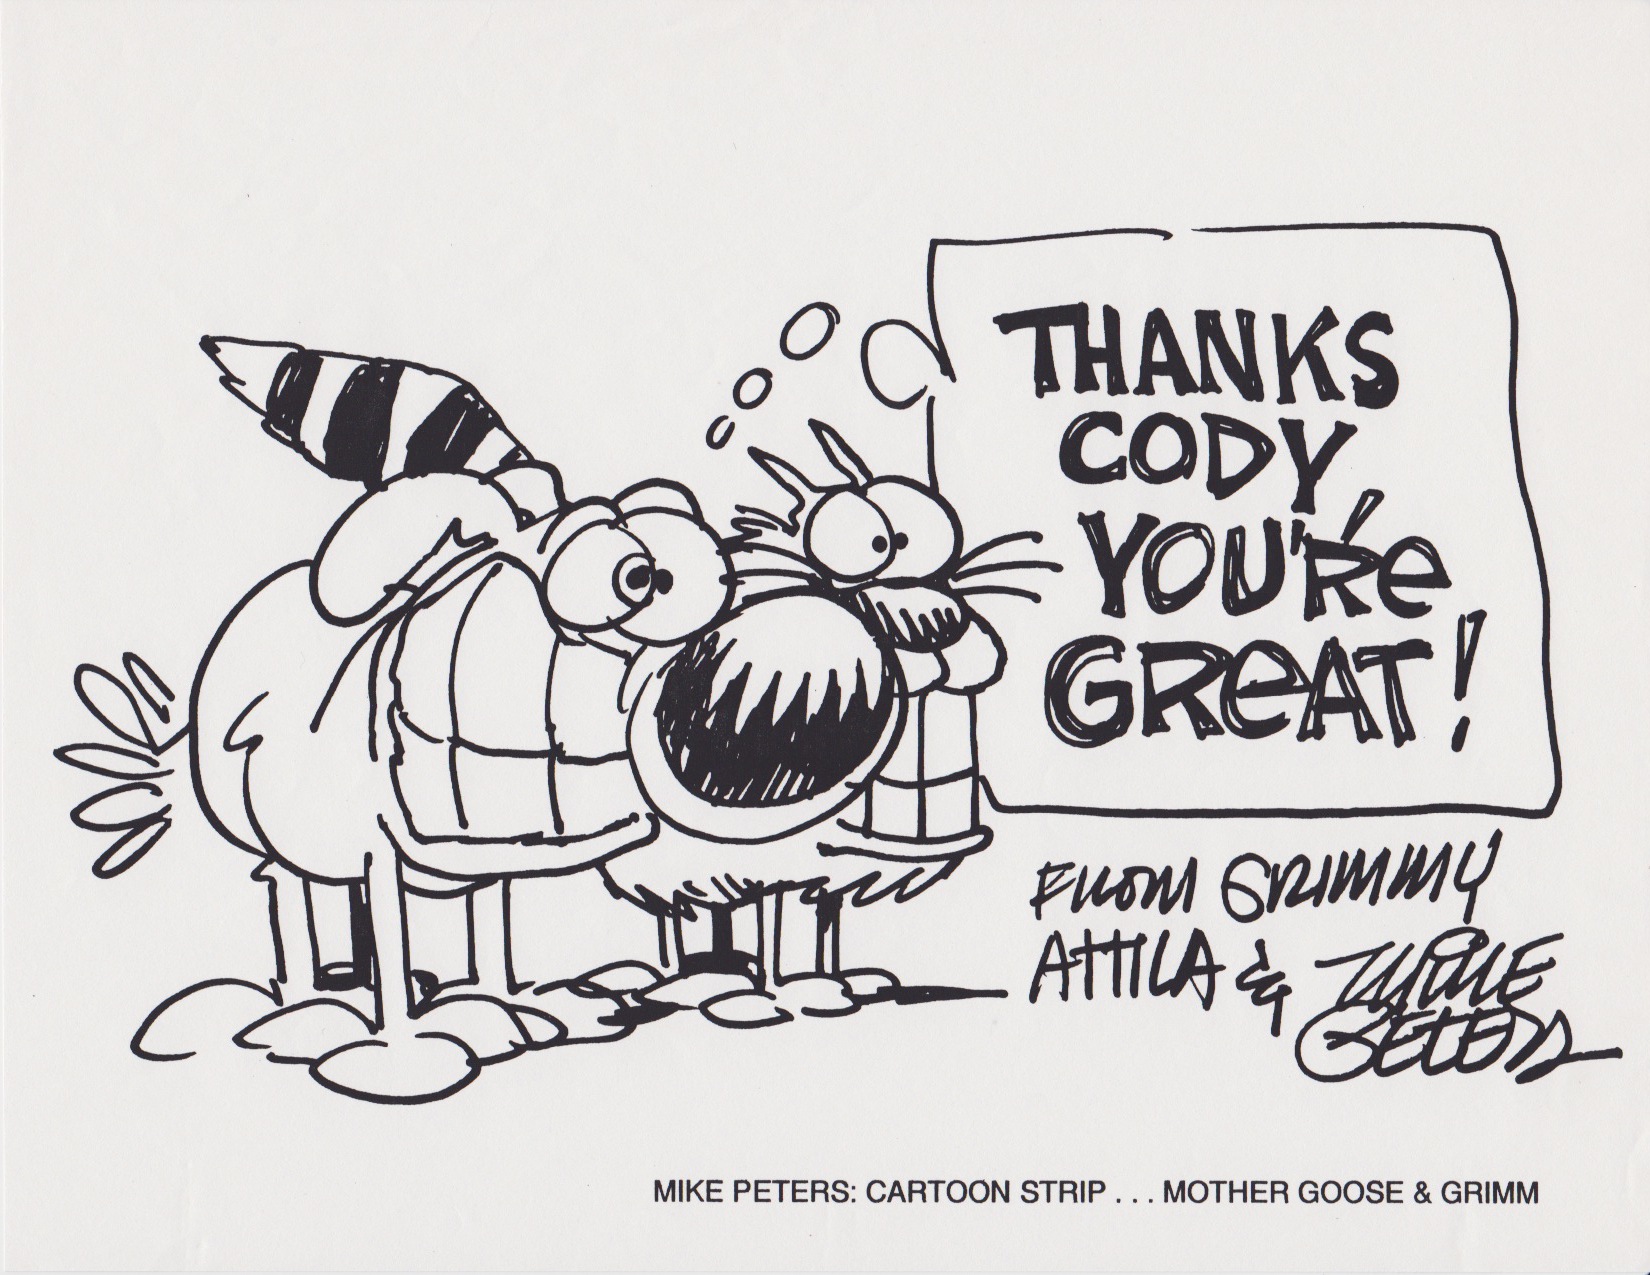 THANKS
CODY,
YOU'Re
GReAT!
FROM GRIMMY
ATTILA & MIKE
PETERS
MIKE PETERS: CARTOON STRIP . . . MOTHER GOOSE & GRIMM